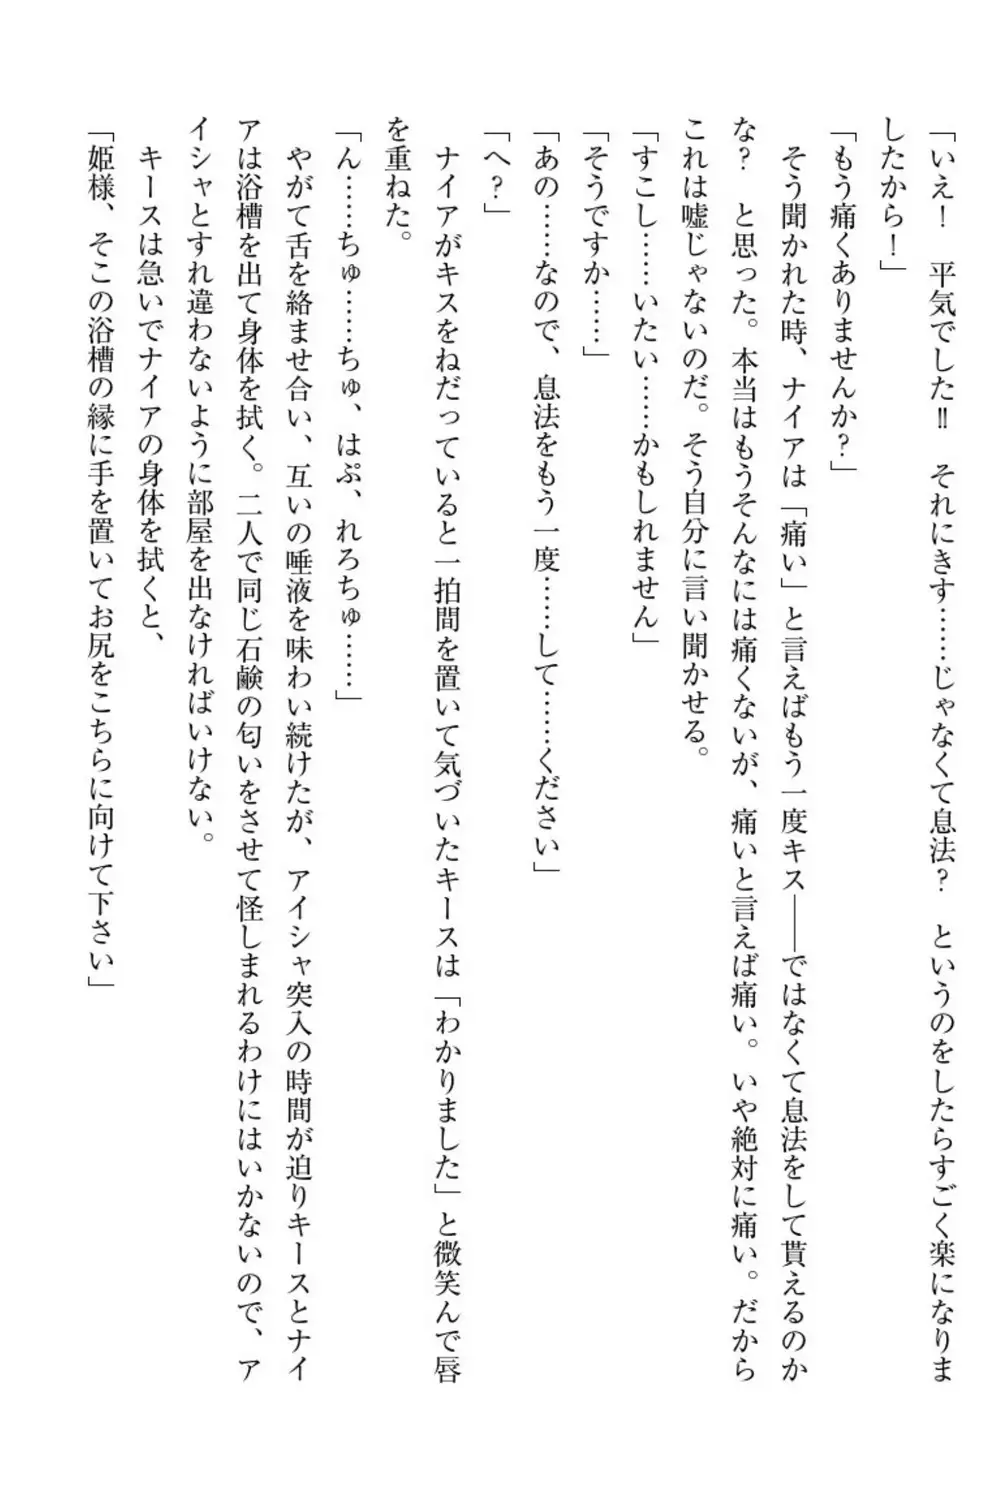 「いえ！　平気でした‼　それにきす……じゃなくて息法？　というのをしたらすごく楽になりま
したから！」
「もう痛くありませんか？」
　そう聞かれた時、ナイアは「痛い」と言えばもう一度キス――ではなくて息法をして貰えるのか
な？　と思った。本当はもうそんなには痛くないが、痛いと言えば痛い。いや絶対に痛い。だから
これは嘘じゃないのだ。そう自分に言い聞かせる。
「すこし……いたい……かもしれません」
「そうですか……」
「あの……なので、息法をもう一度……して……ください」
「へ？」
　ナイアがキスをねだっていると一拍間を置いて気づいたキースは「わかりました」と微笑んで唇
を重ねた。
「ん……ちゅ……ちゅ、はぷ、れろちゅ……」
　やがて舌を絡ませ合い、互いの唾液を味わい続けたが、アイシャ突入の時間が迫りキースとナイ
アは浴槽を出て身体を拭く。二人で同じ石鹸の匂いをさせて怪しまれるわけにはいかないので、ア
イシャとすれ違わないように部屋を出なければいけない。
　キースは急いでナイアの身体を拭くと、
「姫様、そこの浴槽の縁に手を置いてお尻をこちらに向けて下さい」